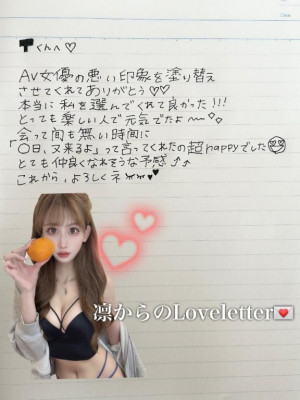 Tくんへ♡
AV女優の悪い印象を塗り替え
させてくれてありがとう♡♡
本当に私を選んでくれて良かった!!!
とっても楽しい人で元気でたよ〜♡。
会って間も無い時間に
「〇日、又来るよ」って言ってくれたの超happyでした
とても仲良くなれそうな予感⤴⤴
これから、よろしくネ♥
凛からのLoveletter💌